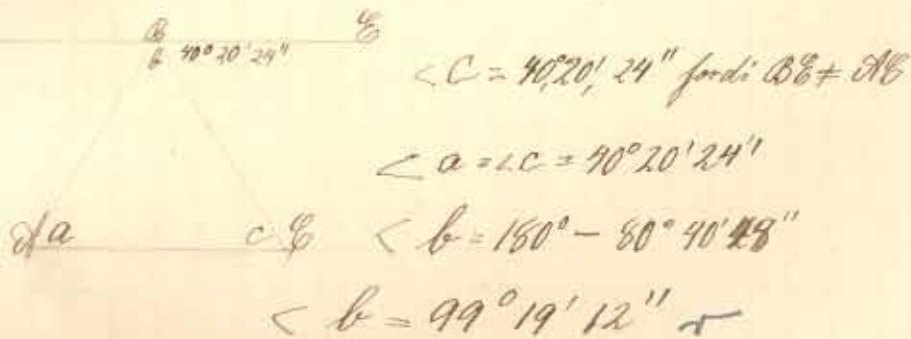 B E
b 40° 20' 24"
< C = 40°, 20', 24" fordi BE ≠ AC
< a = < c = 40° 20' 24"
A a c C
< b = 180° - 80° 40' 48"
< b = 99° 19' 12" r